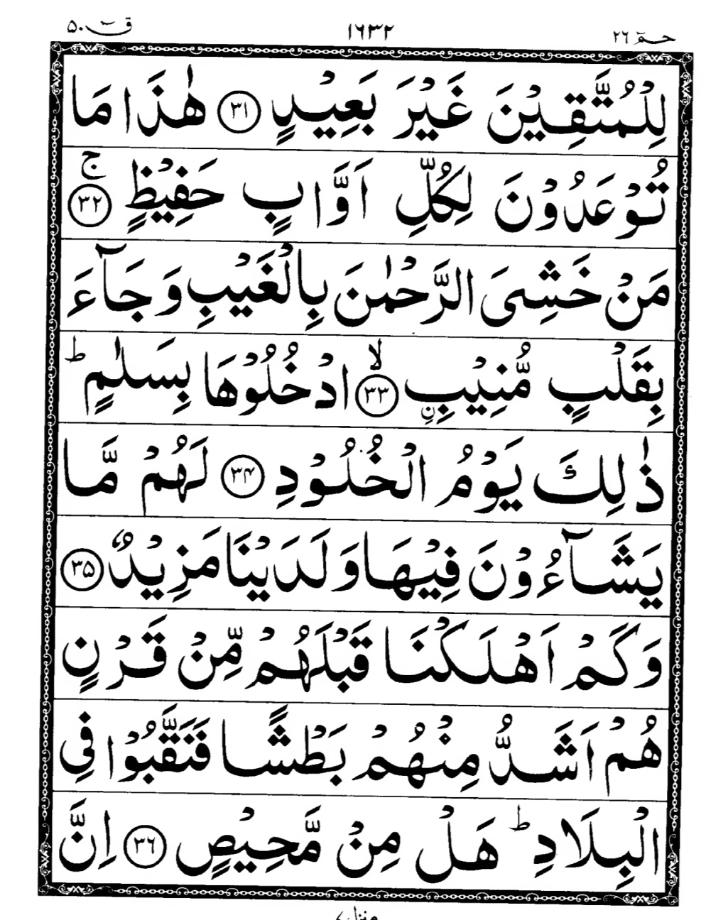 حٰمٓ ٢٦ ١٦٣٢ قٓ ٥٠
لِلْمُتَّقِيْنَ غَيْرَ بَعِيْدٍ ﴿۳۱﴾ هٰذَا مَا
تُوْعَدُوْنَ لِكُلِّ اَوَّابٍ حَفِيْظٍ ۚ﴿۳۲﴾
مَنْ خَشِىَ الرَّحْمٰنَ بِالْغَيْبِ وَجَآءَ
بِقَلْبٍ مُّنِيْبِ ۙ﴿۳۳﴾ ۨادْخُلُوْهَا بِسَلٰمٍ ؕ
ذٰلِكَ يَوْمُ الْخُلُوْدِ ﴿۳۴﴾ لَهُمْ مَّا
يَشَآءُوْنَ فِيْهَا وَلَدَيْنَا مَزِيْدٌ ﴿۳۵﴾
وَكَمْ اَهْلَكْنَا قَبْلَهُمْ مِّنْ قَرْنٍ
هُمْ اَشَدُّ مِنْهُمْ بَطْشًا فَنَقَّبُوْا فِى
الْبِلَادِ ؕ هَلْ مِنْ مَّحِيْصٍ ﴿۳۶﴾ اِنَّ
منزل ٧